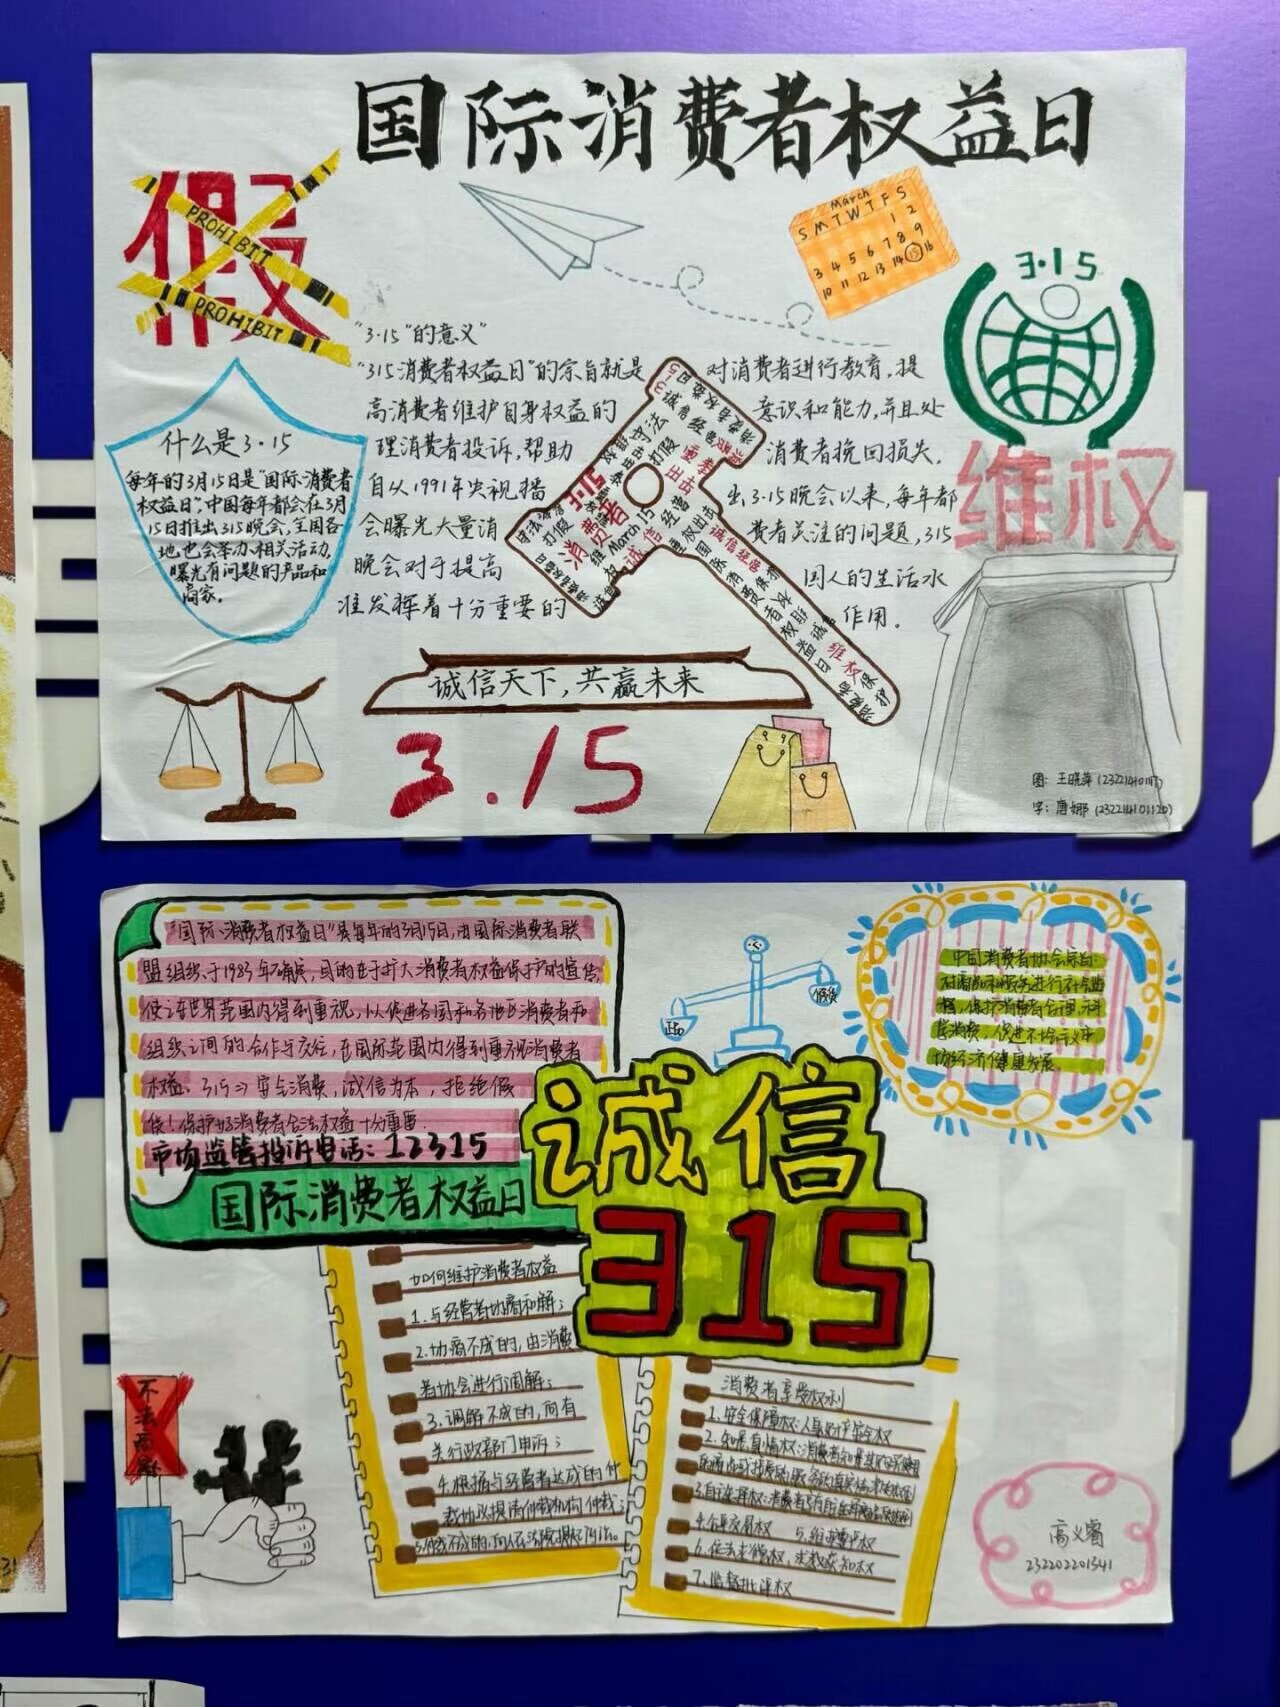 国际消费者权益日
假
PROHIBIT
PROHIBIT
March
S M T W T F S
1 2
3 4 5 6 7 8 9
10 11 12 13 14 15 16
3·15
维权
什么是3·15
每年的3月15日是"国际消费者
权益日",中国每年都会在3月
15日推出315晚会,全国各
地也会举办相关活动,
曝光有问题的产品和
商家。
"3·15"的意义"
"315消费者权益日"的宗旨就是 对消费者进行教育,提
高消费者维护自身权益的 意识和能力,并且处
理消费者投诉,帮助 消费者挽回损失.
自从1991年央视播 出3·15晚会以来,每年都
会曝光大量消 费者关注的问题,315
晚会对于提高 国人的生活水
准发挥着十分重要的 作用.
3·15
消费者
March 15
诚信
诚信经营
维权
诚信天下,共赢未来
3.15
图:王晓萍
字:唐娜(232214101120)
"国际消费者权益日"是每年的3月15日,由国际消费者联
盟组织于1983年确定,目的在于扩大消费者权益保护的宣传,
使之在世界范围内得到重视,以促进各国和各地区消费者
组织之间的合作与交往,在国际范围内得到重视消费者
权益。315⇒安全消费,诚信为本,拒绝假
货!保护好消费者合法权益十分重要.
市场监管投诉电话:12315
国际消费者权益日
正品
假货
中国消费者协会宗旨:
对商品和服务进行社会监
督,保护消费者合理、科
学消费,促进社会主义市
场经济健康发展.
诚信
315
如何维护消费者权益
1.与经营者协商和解;
2.协商不成的,由消费
者协会进行调解;
3.调解不成的,向有
关行政部门申诉;
4.根据与经营者达成的仲
裁协议提请仲裁机构仲裁;
消费者享受权利
1.安全保障权:人身财产安全权
2.知悉真情权:
3.自选择权:
4.公平交易权 5.维护尊严权
6.依法求偿权,求教获知权
7.监督批评权
不法商贩
高义睿
232202201341
31